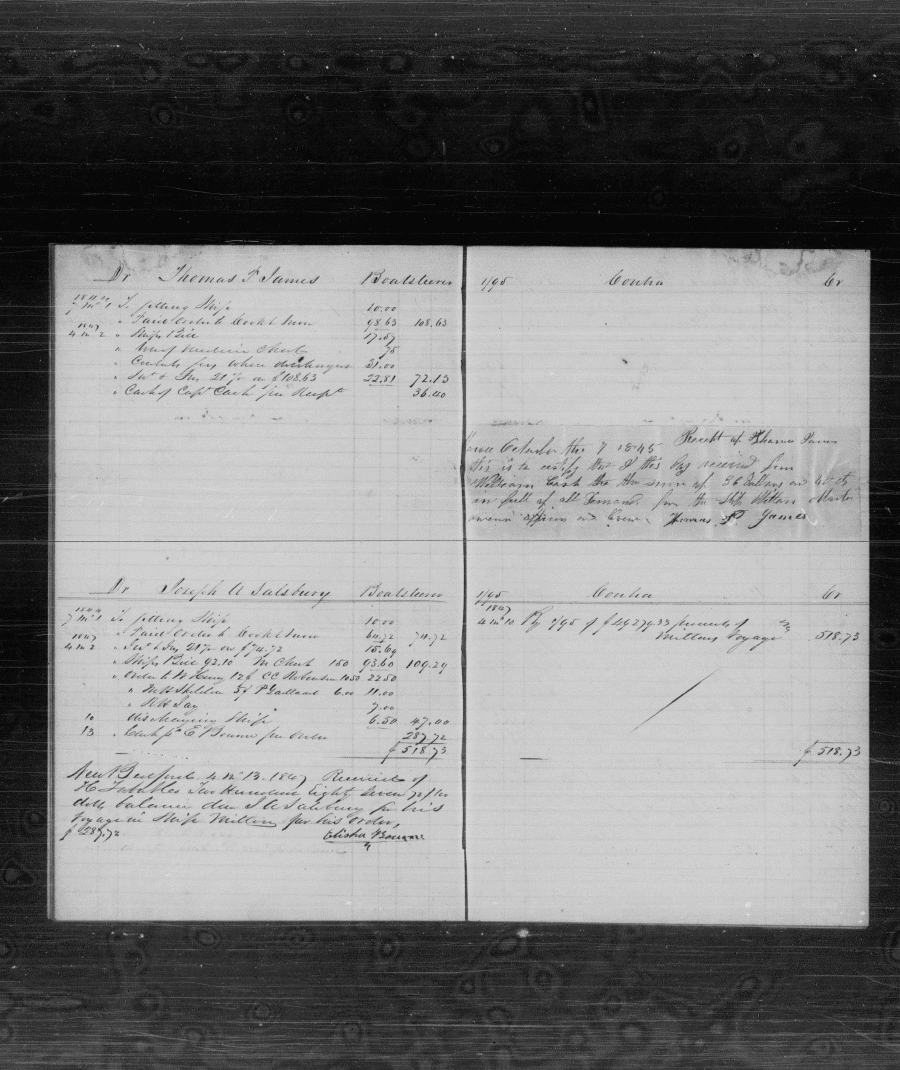 Dr Thomas F James Boatsteerer
1844
7 mo 1 To fitting Ship 10.00
" Paid Order to Cook & Snow 98.63 108.63
1847
4 mo 2 " Ships Bill 17.57
" Use of Medicine Chest 75
" Consuls fees where discharged 31.00
" Int & Ins 21 % on $108.63 22.81 72.13
" Cash of Capt Cash per Receipt 36.40
1/95 Contra Cr
Receipt of Thomas James
October the 7 1845
this is to certify that I this Day received from
William Cash the the sum of 36 Dollars and 40 cts
in full of all Demand from the Ship Milton Master
owners officers and Crew. Thomas F James
Dr Joseph A Salsbury Boatsteerer
1844
7 mo 1 To fitting Ship 10.00
" Paid Order to Cook & Snow 64.72 74.72
1847
4 mo 2 " Int & Ins 21 % on $74.72 15.69
" Ships Bill 92.10 M Chest 1.50 93.60 109.29
" Order to W Henry 12 $ CC Robertson 10.50 22.50
" 5 $ P 6.00 11.00
" 7.00
10 " discharging Ship 6.50 47.00
13 " Cash pd E Bourne per Order 287.72
$518.73
New Bedford 4 mo 13. 1847 Received of
Two Hundred Eighty Seven 72/100
dolls balance due J A Salsbury for his
voyage in Ship Milton per his order,
$287.72 Elisha Bourne
1/95 Contra Cr
1847
4 mo 10 By 1/95 of $49279.33 proceeds of
Miltons Voyage 518.73
$518.73